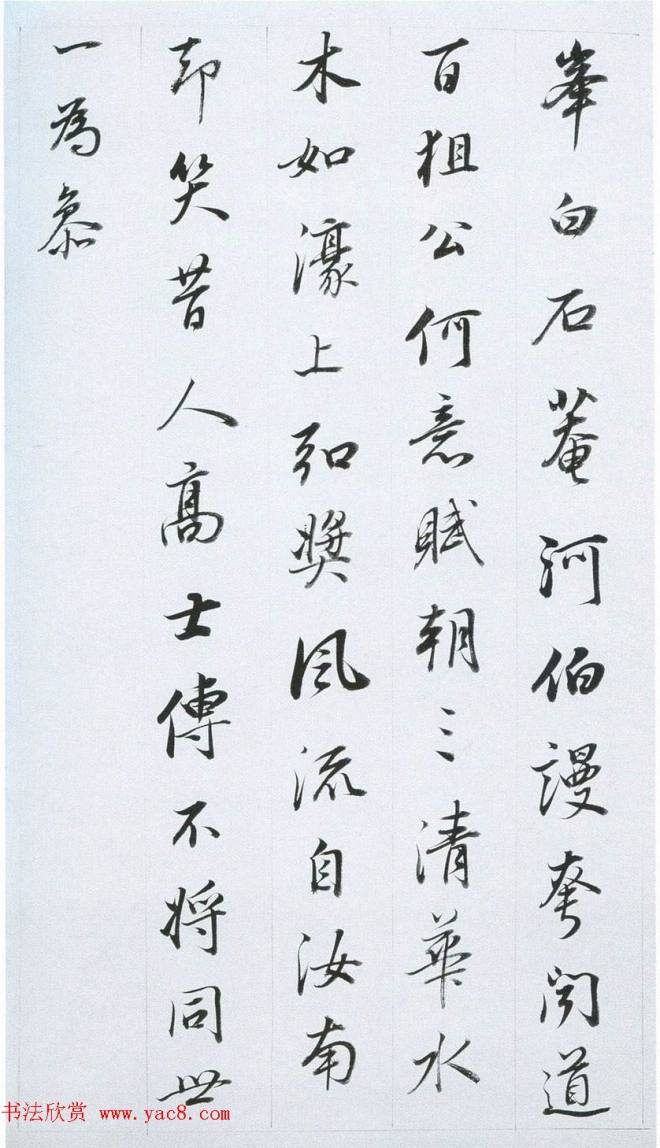 峯白石菴河伯謾夸闻道
百狙公何意賦朝三清華水
木如濠上弘奬風流自汝南
却笑昔人高士傳不將同世
一為叅
书法欣赏 www.yac8.com